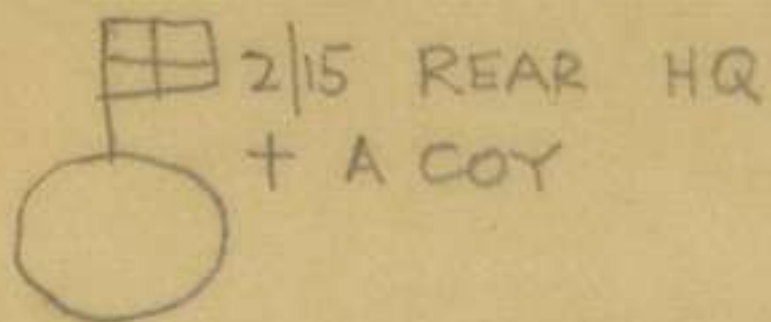 2/15 REAR HQ
+ A COY